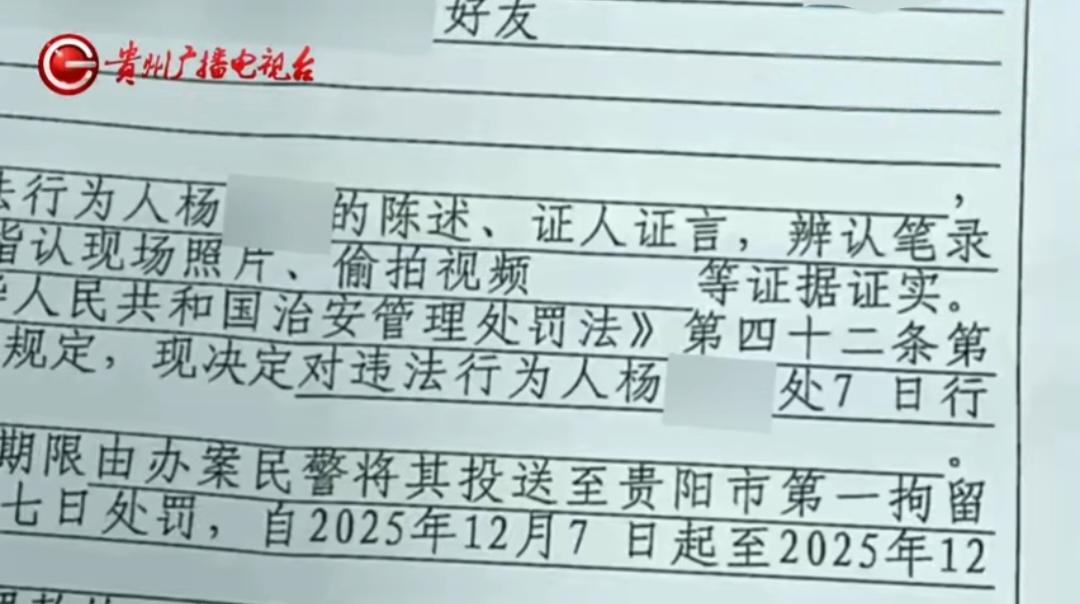 好友
贵州广播电视台
法行为人杨 的陈述、证人证言，辨认笔录
指认现场照片、偷拍视频 等证据证实。
华人民共和国治安管理处罚法》第四十二条第
规定，现决定对违法行为人杨 处7 日行
。
期限由办案民警将其投送至贵阳市第一拘留
七日处罚，自2025年12月7 日起至2025年12